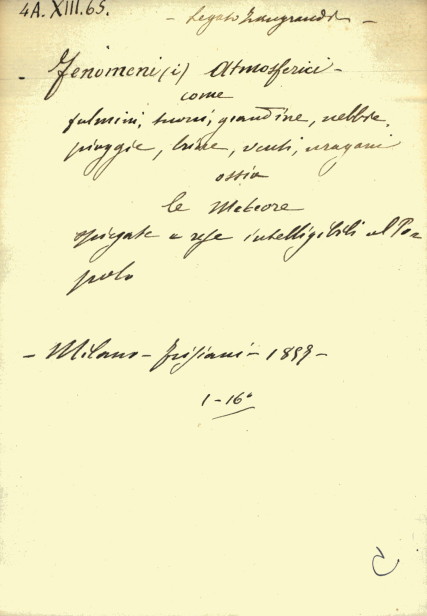 4A. XIII. 65.
- Legato Zangrandi -
- Fenomeni (i) Atmosferici -
come
fulmini, tuoni, grandine, nebbie,
pioggie, brine, venti, uragani
ossia
le Meteore
spiegate e rese intelligibili al Po=
polo
- Milano - - 18
1 - 16°